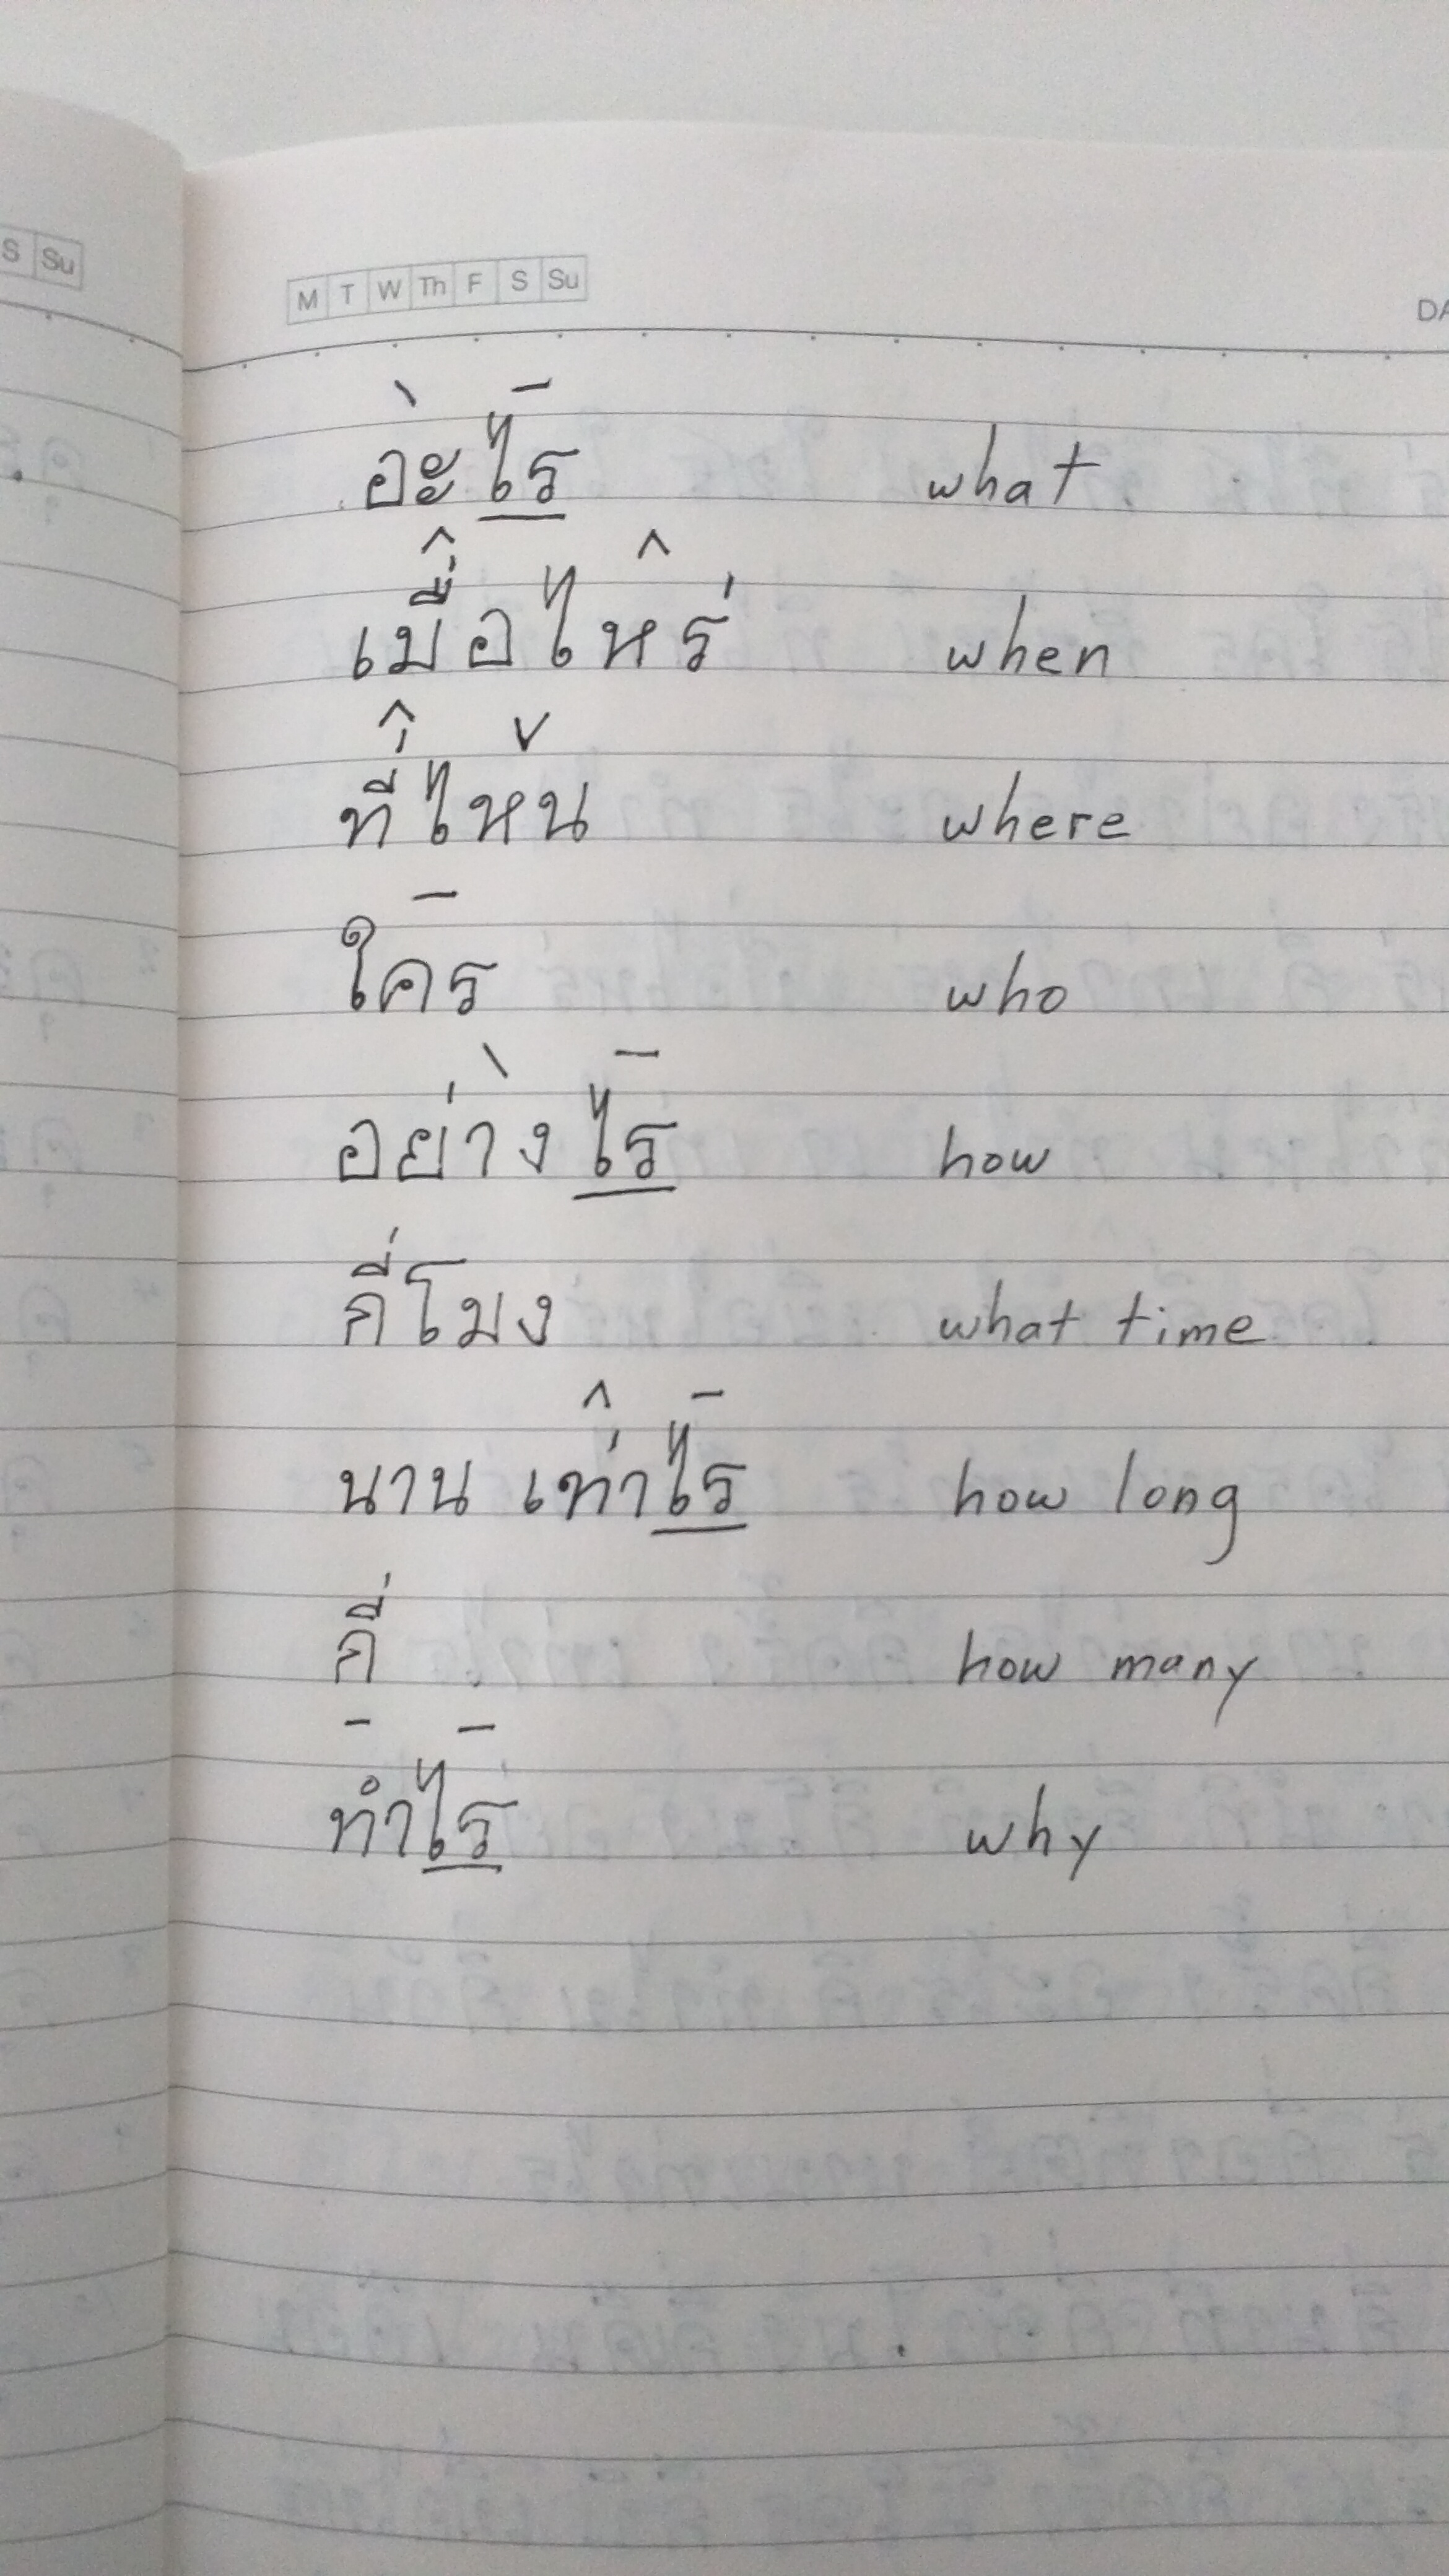 S Su
M T W Th F S Su
DA
อะไร what
เมื่อไหร่ when
ที่ไหน where
ใคร who
อย่างไร how
กี่โมง what time
นาน เท่าไร how long
กี่ how many
ทำไร why